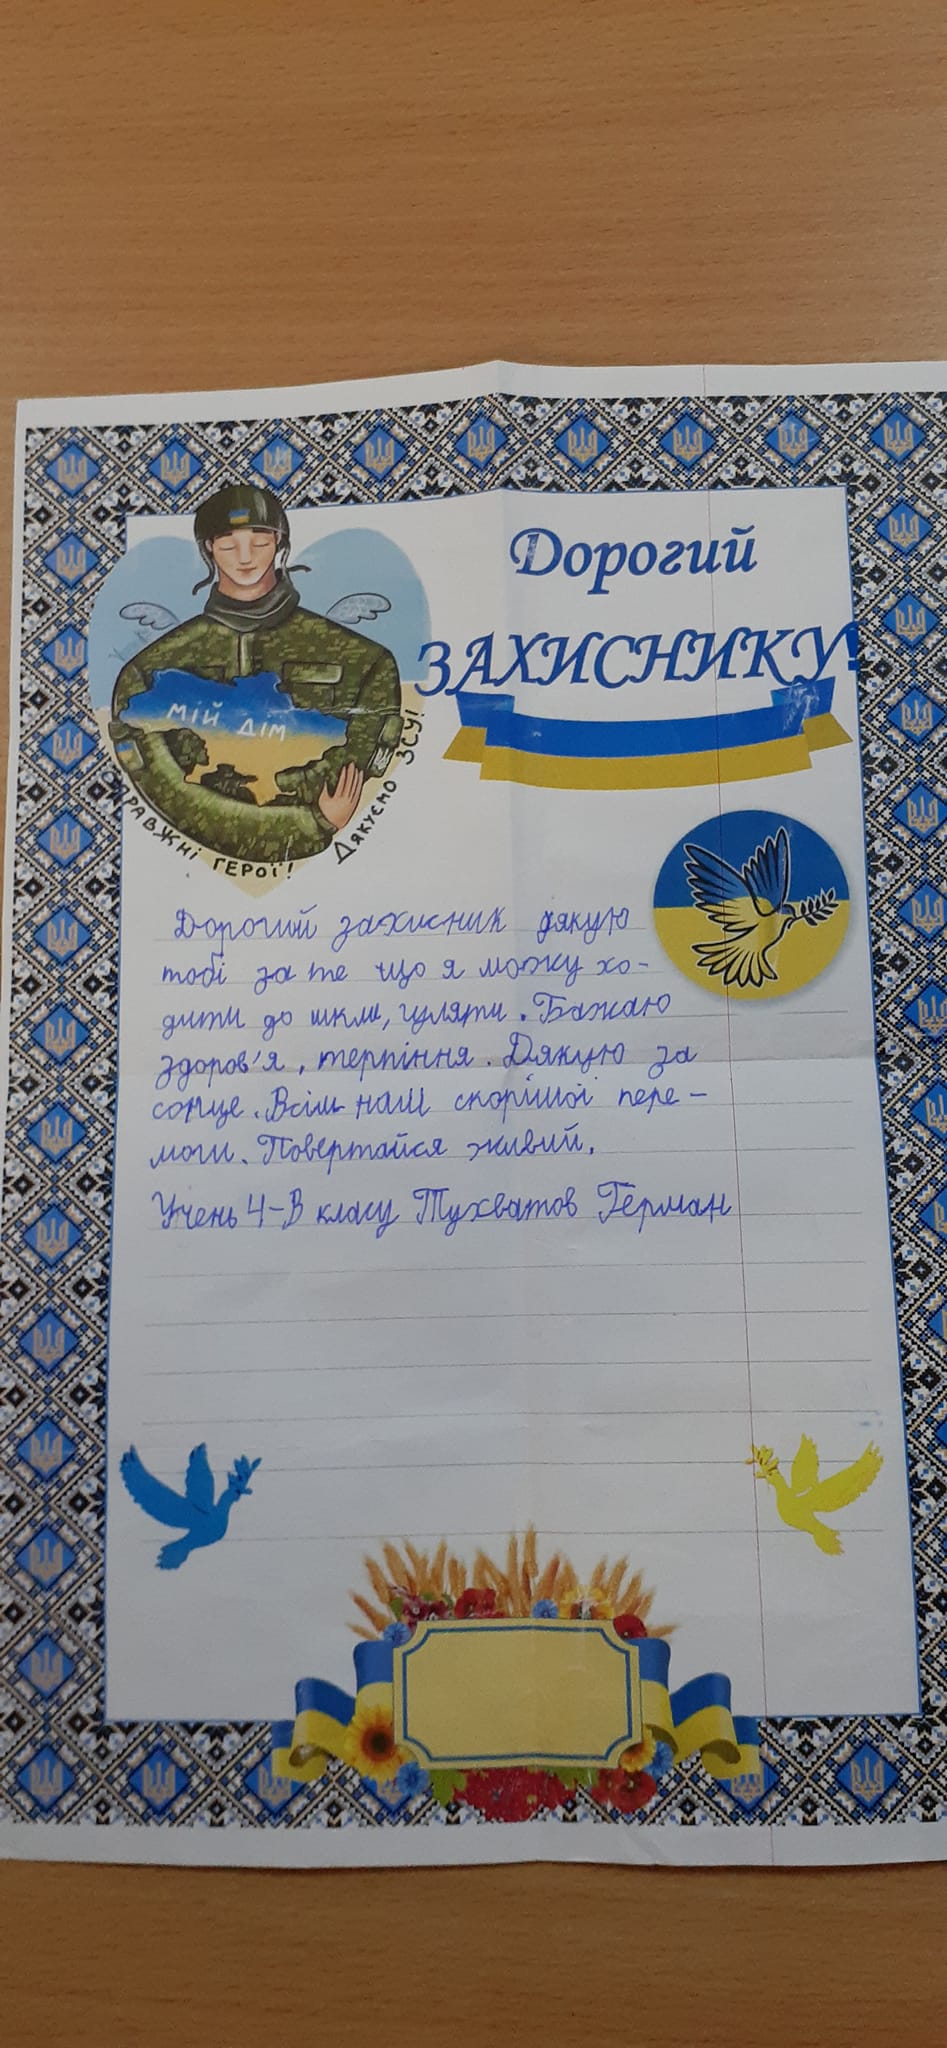 Дорогий
ЗАХИСНИКУ!
МІЙ ДІМ
СПРАВЖНІ ГЕРОЇ!
ДЯКУЄМО ЗСУ!
Дорогий захисник дякую
тобі за те що я можу хо-
дити до шкли, гуляти. Бажаю
здоров'я, терпіння. Дякую за
сонце. Всім нам скорішої пере-
моги. Повертайся живий.
Учень 4-В класу Тухватов Герман